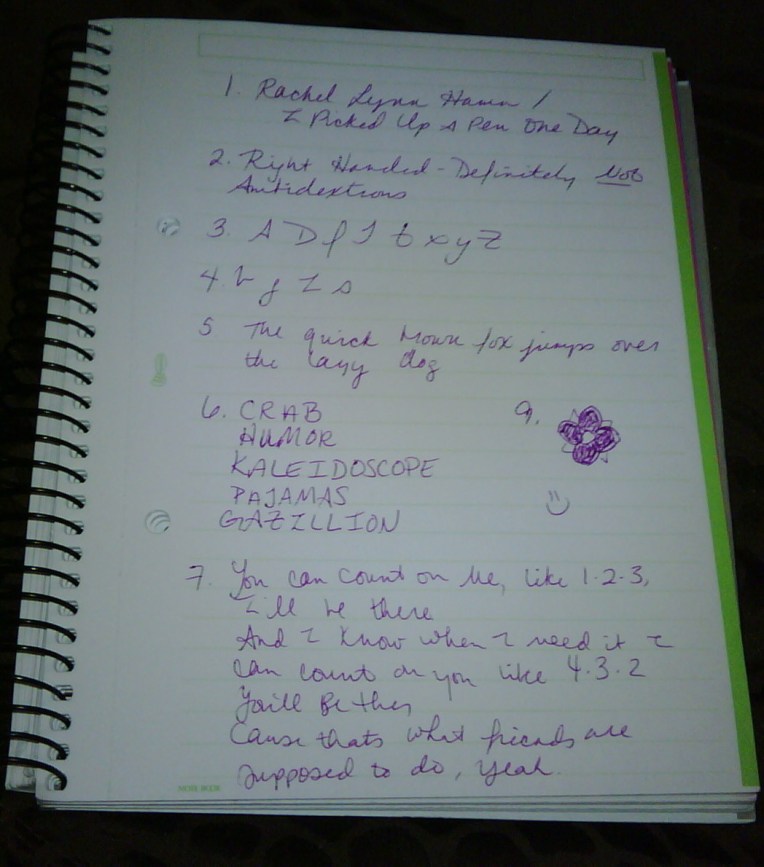 1. Rachel Lynn Hamm /
I Picked Up A Pen One Day
2. Right Handed - Definitely Not
Ambidextrous
3. A D f J t x y z
4. b g I s
5 The quick brown fox jumps over
the lazy dog
6. CRAB
HUMOR
KALEIDOSCOPE
PAJAMAS
GAZILLION
9.
7. You can count on Me, like 1.2.3,
I'll be there
And I know when I need it I
can count on you like 4.3.2
You'll Be there
Cause thats what friends are
supposed to do, yeah.